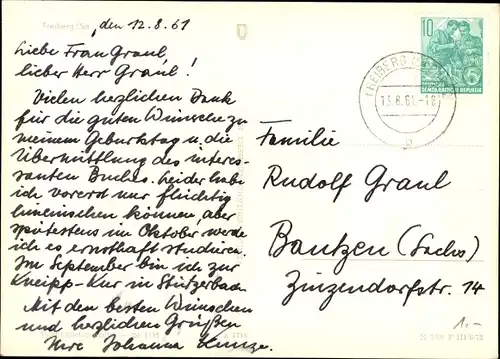 Freiberg (Sa
, den 12.8.61
Liebe Frau Graul,
lieber Herr Graul!
Vielen herzlichen Dank
für die guten Wünsche zu
meinem Geburtstag u. die
Übermittlung des interes-
santen Buches. Leider habe
ich vorerst nur flüchtig
hineinsehen können, aber
spätestens im Oktober werde
ich es ernsthaft studieren.
Im September bin ich zur
Kneipp-Kur in Stützerbach.
Mit den besten Wünschen
und herzlichen Grüßen
Ihre Johanna Kunze.
10
DEMOKRATISCHE REPUBLIK
FREIBERG
13.8.61-18
b
Familie
Rudolf Graul
Bautzen (Sachs)
Zinzendorfstr. 14
1.-